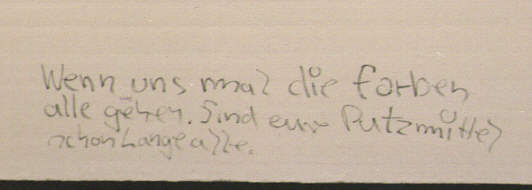 Wenn uns mal die farben
alle gehen. Sind eure Putzmittel
schon lange alle.